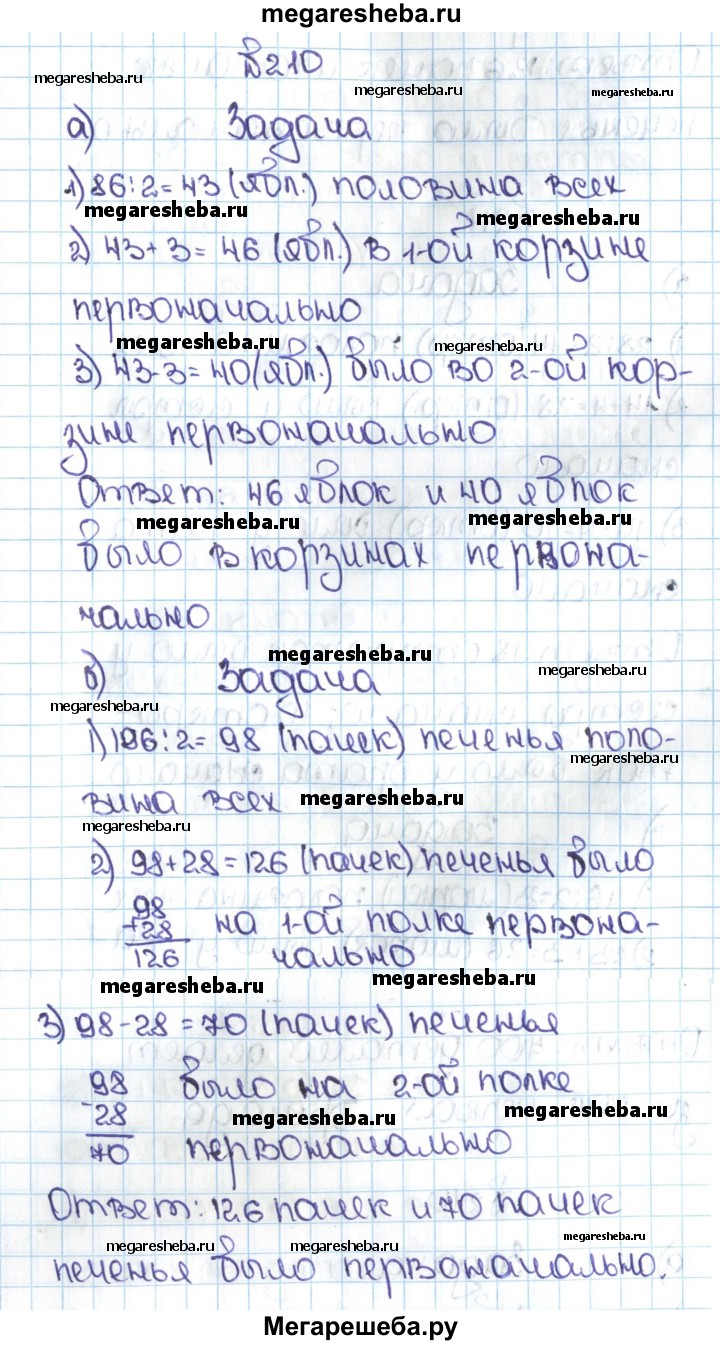 megaresheba.ru
№210
megaresheba.ru megaresheba.ru megaresheba.ru
а) Задача
1) 86:2=43 (ябл.) половина всех
megaresheba.ru megaresheba.ru
2) 43+3=46 (ябл.) в 1-ой корзине
первоначально
megaresheba.ru megaresheba.ru
3) 43-3=40 (ябл.) было во 2-ой кор-
зине первоначально
Ответ: 46 яблок и 40 яблок
megaresheba.ru megaresheba.ru
было в корзинах первона-
чально
megaresheba.ru megaresheba.ru
б) Задача
megaresheba.ru
1) 196:2=98 (пачек) печенья поло-
megaresheba.ru
вина всех megaresheba.ru
megaresheba.ru
2) 98+28=126 (пачек) печенья было
98
+28 на 1-ой полке первона-
126 чально
megaresheba.ru megaresheba.ru
3) 98-28=70 (пачек) печенья
98 было на 2-ой полке
-28 megaresheba.ru megaresheba.ru
70 первоначально
Ответ: 126 пачек и 70 пачек
megaresheba.ru megaresheba.ru megaresheba.ru
печенья было первоначально.
Мегарешеба.ру